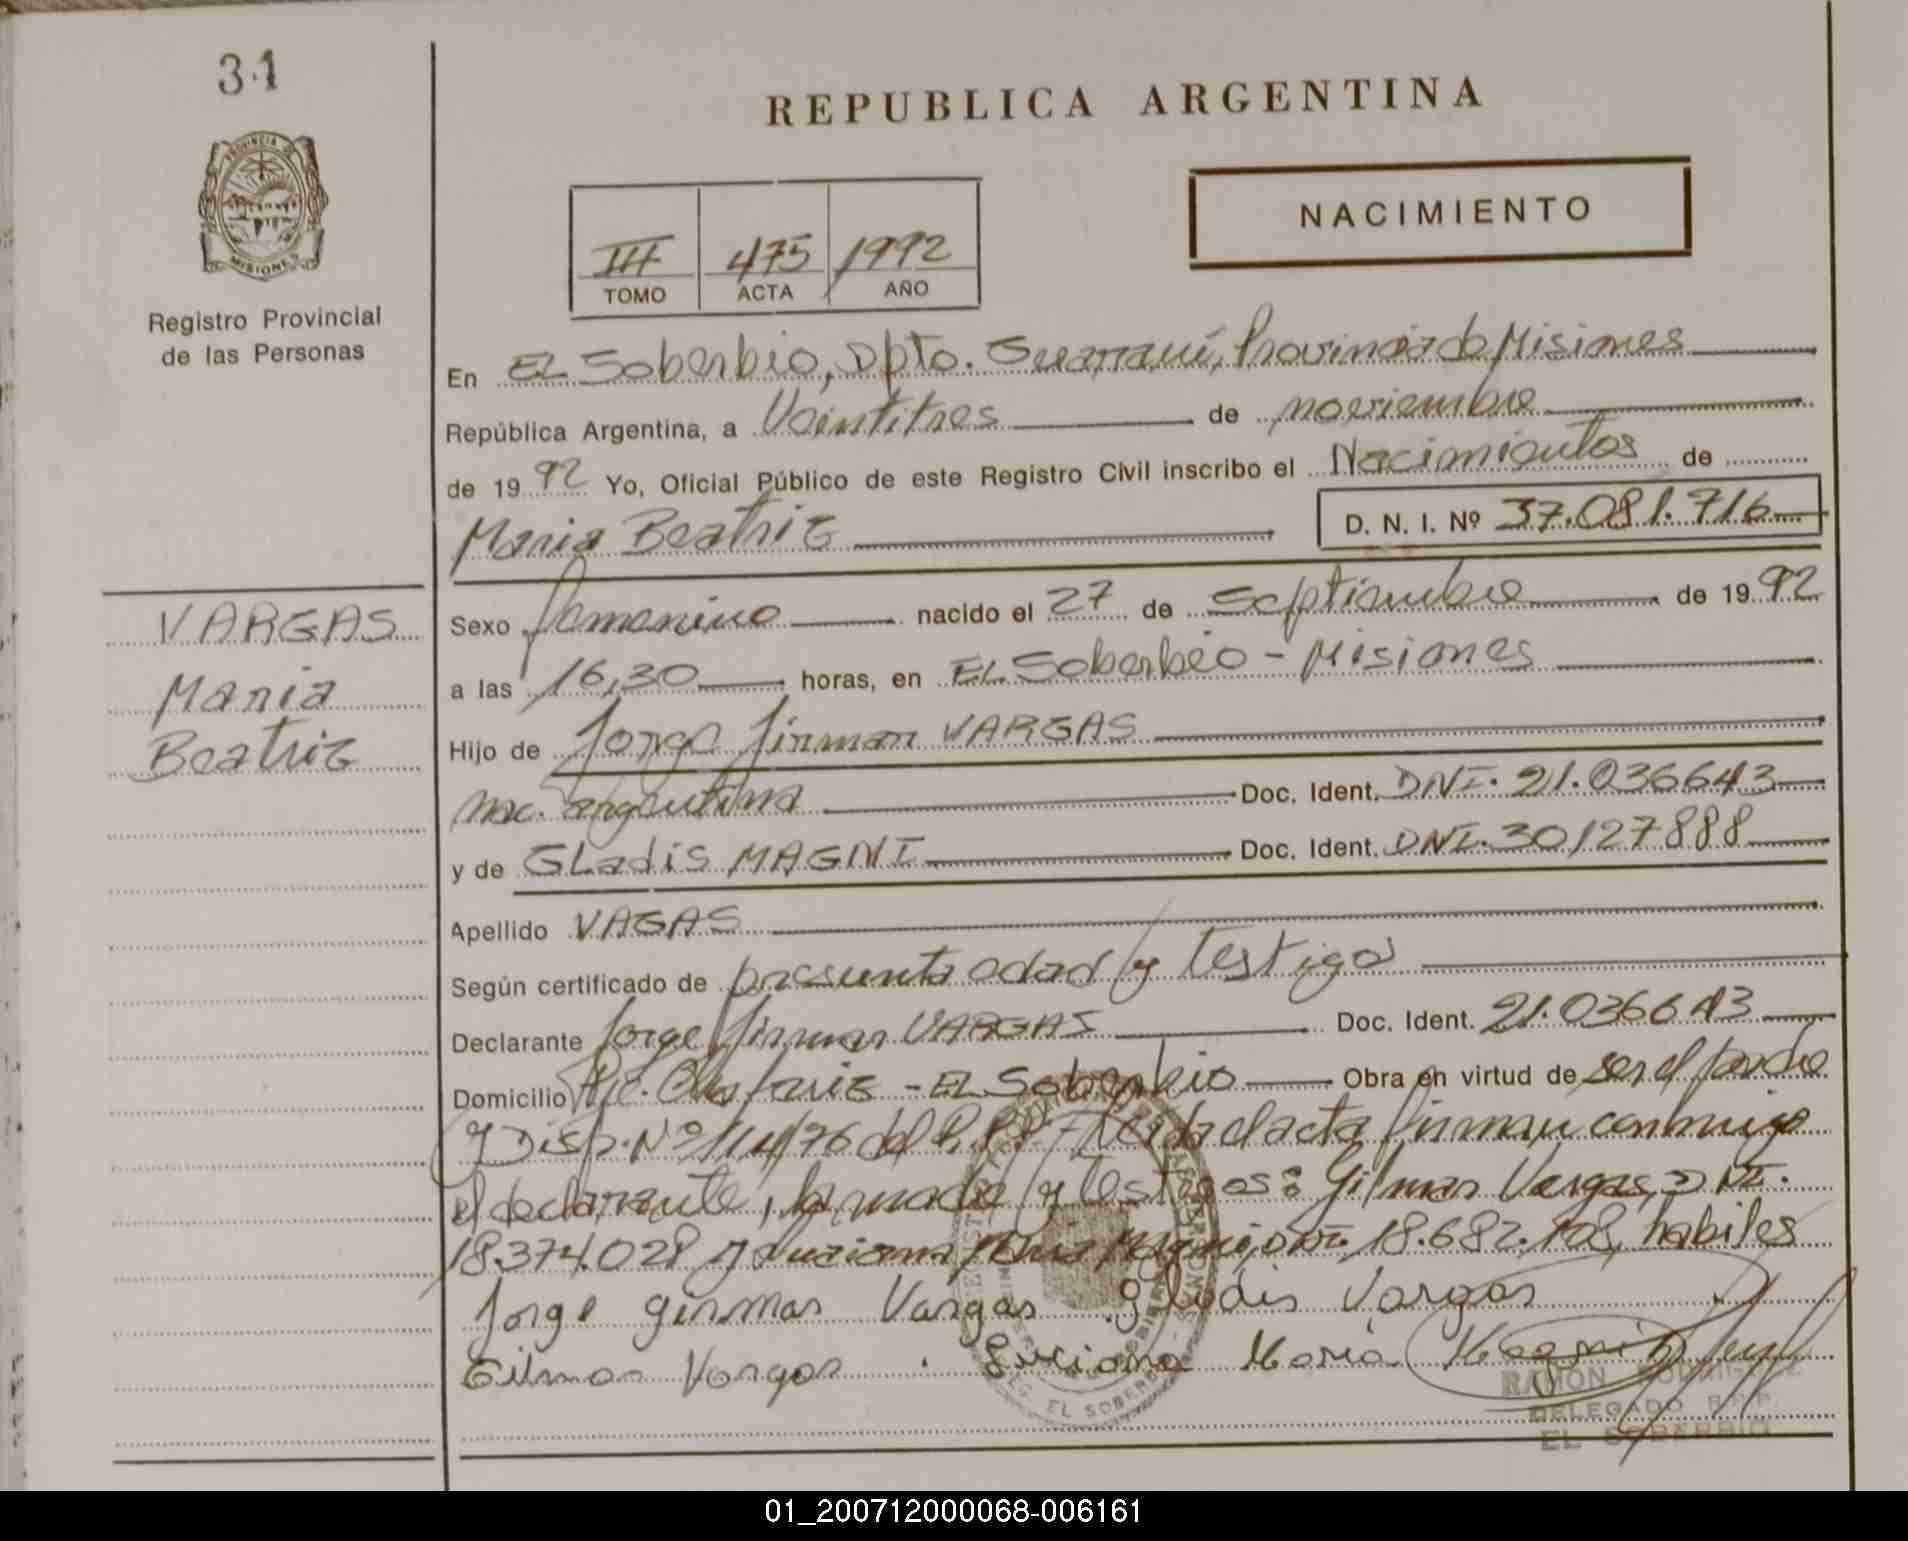 31
REPUBLICA ARGENTINA
PROVINCIA DE
MISIONES
NACIMIENTO
III 475 1992
TOMO ACTA AÑO
Registro Provincial
de las Personas
En EL Soberbio, Dpto. Guaraní, Provincia de Misiones
República Argentina, a Veintitres de noviembre
de 1992 Yo, Oficial Público de este Registro Civil inscribo el Nacimientos de
Maria Beatriz D. N. I. Nº 37.081.716
VARGAS
Maria
Beatriz
Sexo femenino nacido el 27 de Septiembre de 1992
a las 16,30 horas, en EL Soberbio - Misiones
Hijo de Jorge firman VARGAS
nac. argentina Doc. Ident. DNI. 21.036643
y de GLadis MAGNI Doc. Ident. DNI. 30127888
Apellido VAGAS
Según certificado de presunta edad y testigos
Declarante Jorge firman VARGAS Doc. Ident. 21.036643
Domicilio EL Soberbio Obra en virtud de ser el padre
y Disp. Nº 114/76 del R.P.P. Leida el acta firman conmigo
el declarante, la madre y testigos: Gilmar Vargas, DNI.
18.374.028 y Luciana Magni, DNI. 18.682.108, habiles
Jorge girmar Vargas Gladis Vargas
Gilmar Vargas Luciana Maria Magni
EL SOBERBIO
RAMON
DELEGADO R.P.P.
EL SOBERBIO
01_200712000068-006161